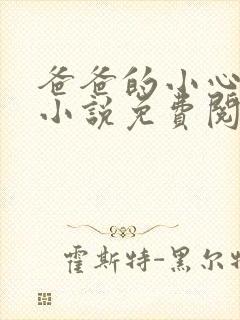 爸爸的小心
小说免费阅
霍斯特-黑尔特